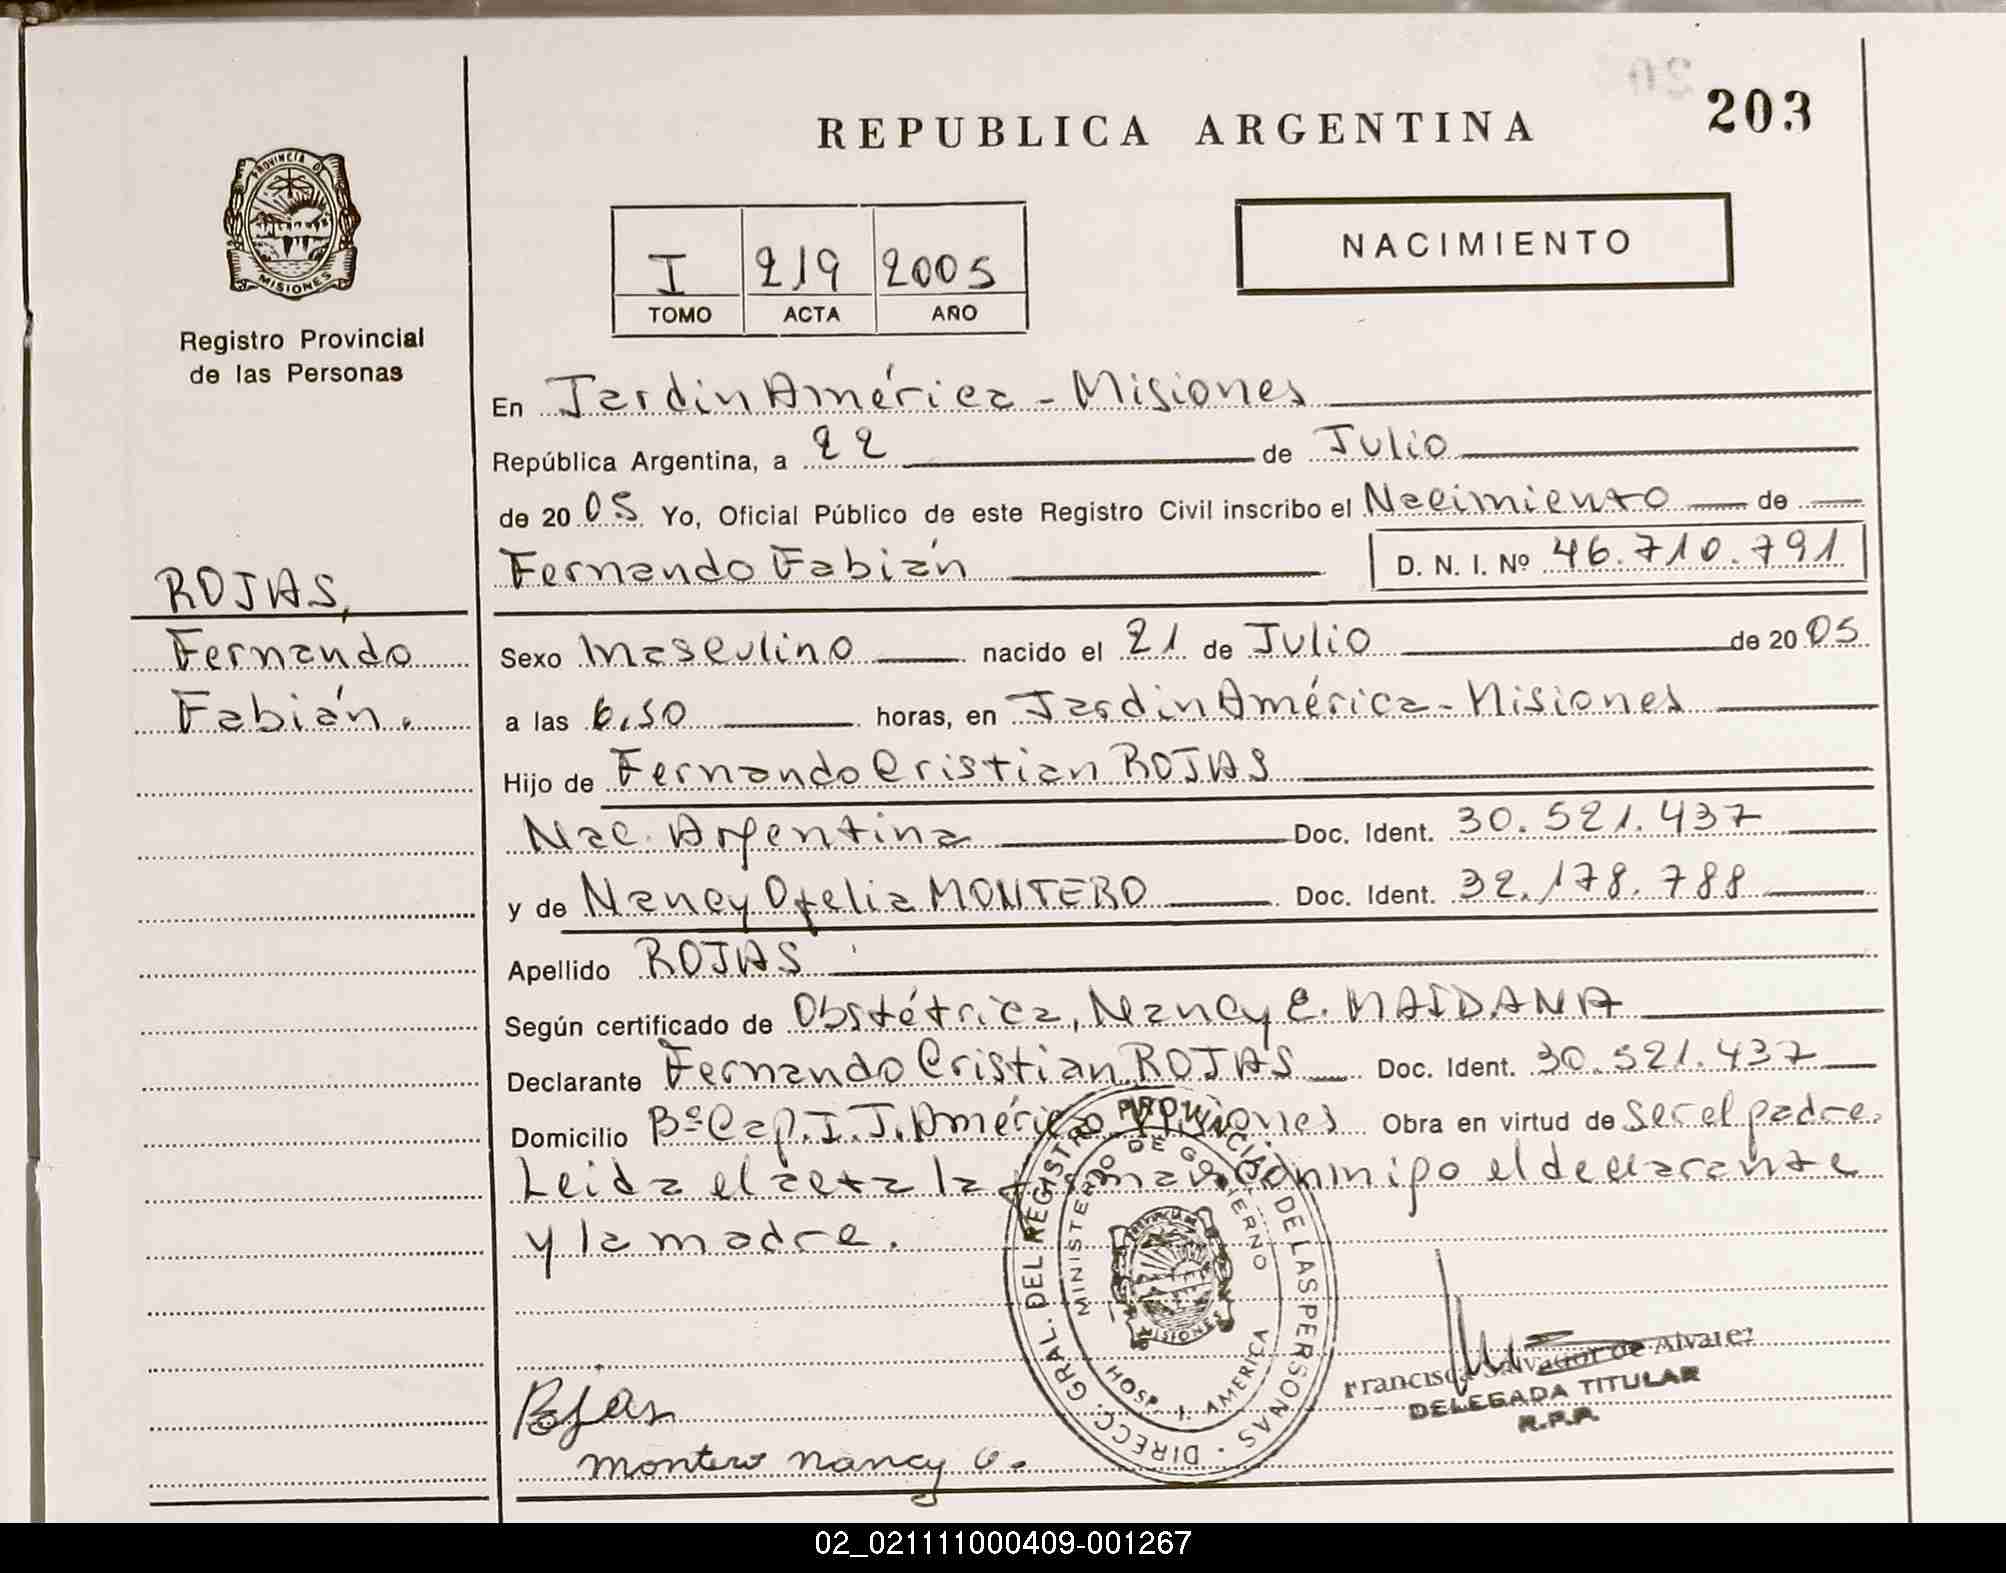 203
REPUBLICA ARGENTINA
PROVINCIA DE
MISIONES
Registro Provincial
de las Personas
I 219 2005
TOMO ACTA AÑO
NACIMIENTO
En Jardin América - Misiones
República Argentina, a 22 de Julio
de 20 05 Yo, Oficial Público de este Registro Civil inscribo el Nacimiento de
Fernando Fabián D. N. I. Nº 46.710.791
ROJAS,
Fernando
Fabián.
Sexo Masculino nacido el 21 de Julio de 20 05
a las 6,50 horas, en Jardin América - Misiones
Hijo de Fernando Cristian ROJAS
Nac. Argentina Doc. Ident. 30.521.437
y de Nancy Ofelia MONTERO Doc. Ident. 32.178.788
Apellido ROJAS
Según certificado de Obstétrica, Nancy E. MAIDANA
Declarante Fernando Cristian ROJAS Doc. Ident. 30.521.437
Domicilio Bº Cap. I. J. América Misiones Obra en virtud de ser el padre.
Leida el acta la firman conmigo el declarante
y la madre.
DIRECC. GRAL. DEL REGISTRO PROVINCIAL DE LAS PERSONAS
MINISTERIO DE GOBIERNO
MISIONES
HOSP. J. AMERICA
Francisca Salvador de Alvarez
DELEGADA TITULAR
R.P.P.
Rojas
Montero Nancy O.
02_021111000409-001267